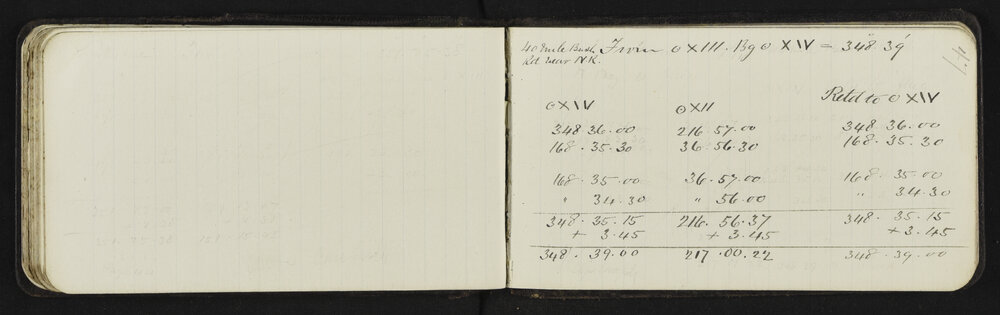 40 Mile Bush From ⊙ XIII. Bg ⊙ XIV = 348° 39'
Rd near NR.
41
⊙ XIV ⊙ XII Retd to ⊙ XIV
348 36.00 216.57.00 348 36.00
168.35.30 36.56.30 168.35.30
168.35.00 36.57.00 168.35.00
" 34.30 " 56.00 " 34.30
348.35.15 216.56.37 348.35.15
+ 3.45 + 3.45 + 3.45
348.39.00 217.00.22 348.39.00